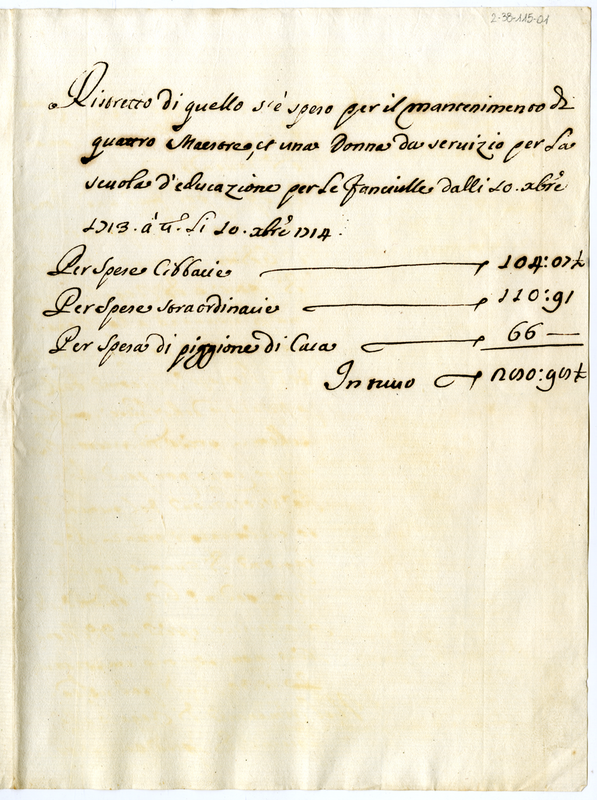 2-38-115-01
Ristretto di quello s'è speso per il mantenimento di
quattro Maestre, et una Donna da servizio per la
scuola d'educazione per le fanciulle dalli 10. xbre
1713. à tt.o li 10. xbre 1714.
Per spese Cibbarie 104:07½
Per spese straordinarie 110:91
Per spesa di piggione di Casa 66 —
In tutto 280:98½